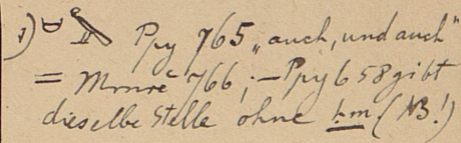 1) 𓂧𓅓 Ppy 765 „auch, und auch“
= Mrnrē 766; – Ppy 658 gibt
dieselbe Stelle ohne ḥm (NB!)